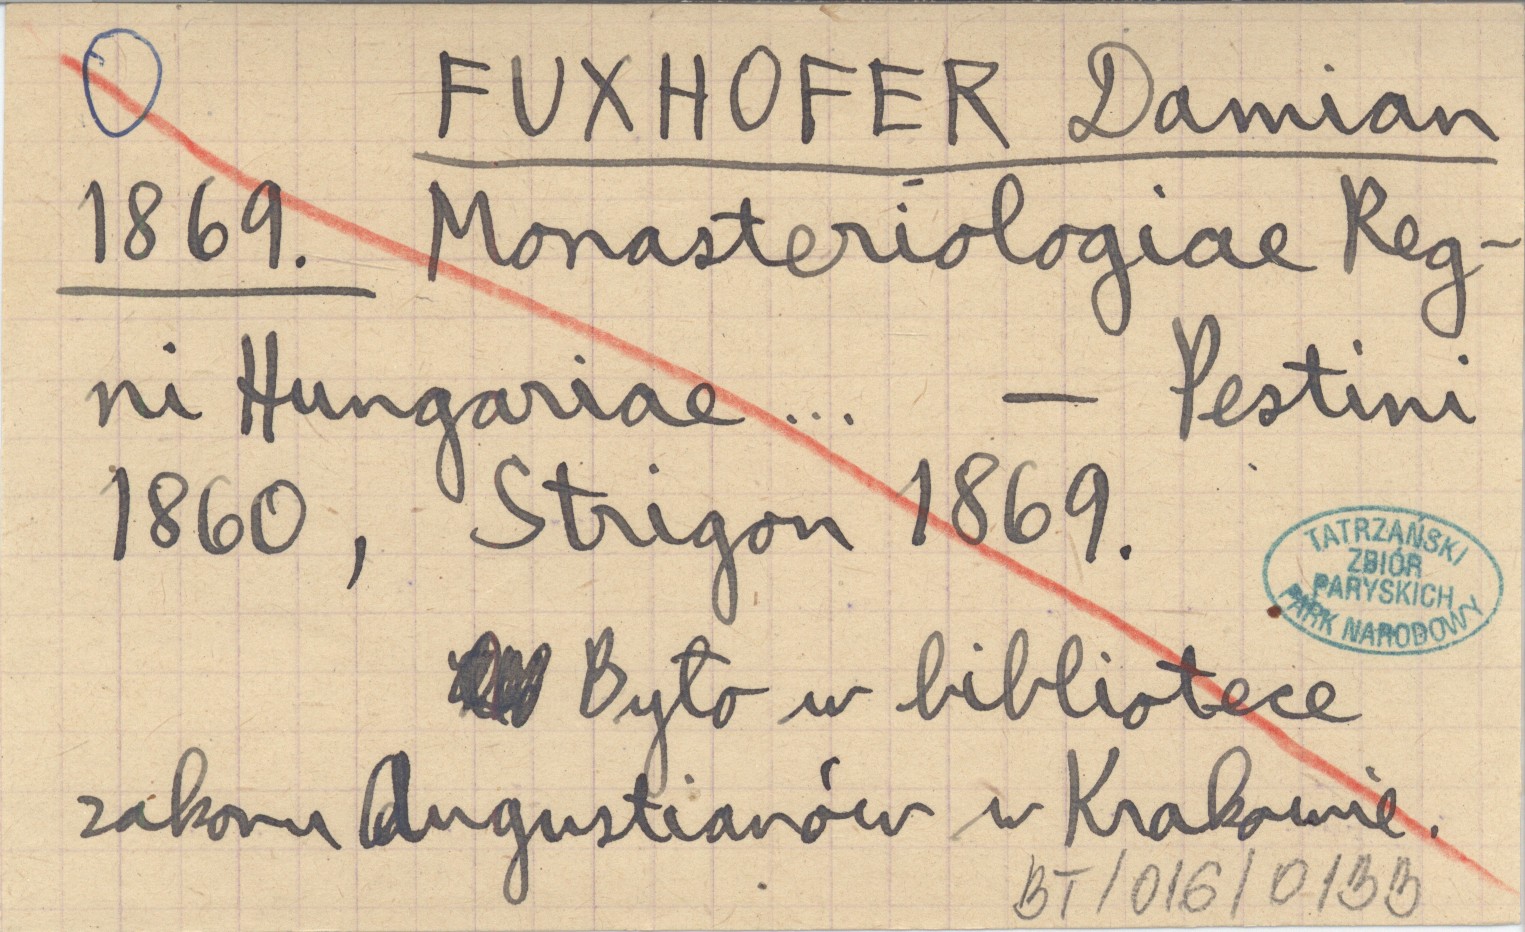 FUXHOFER Damian
1869. Monasteriologiae Reg-
ni Hungariae ... — Pestini
1860, Strigon 1869.
TATRZAŃSKI
ZBIÓR
PARYSKICH
PARK NARODOWY
Było w bibliotece
zakonu Augustianów w Krakowie.
BT/016/0133